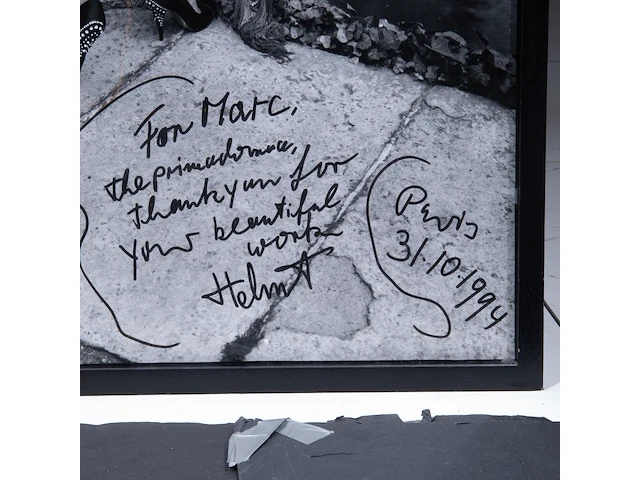 For Marc,
the primadonna,
thank you for
your beautiful
work
Helmut
Paris
31-10-1994